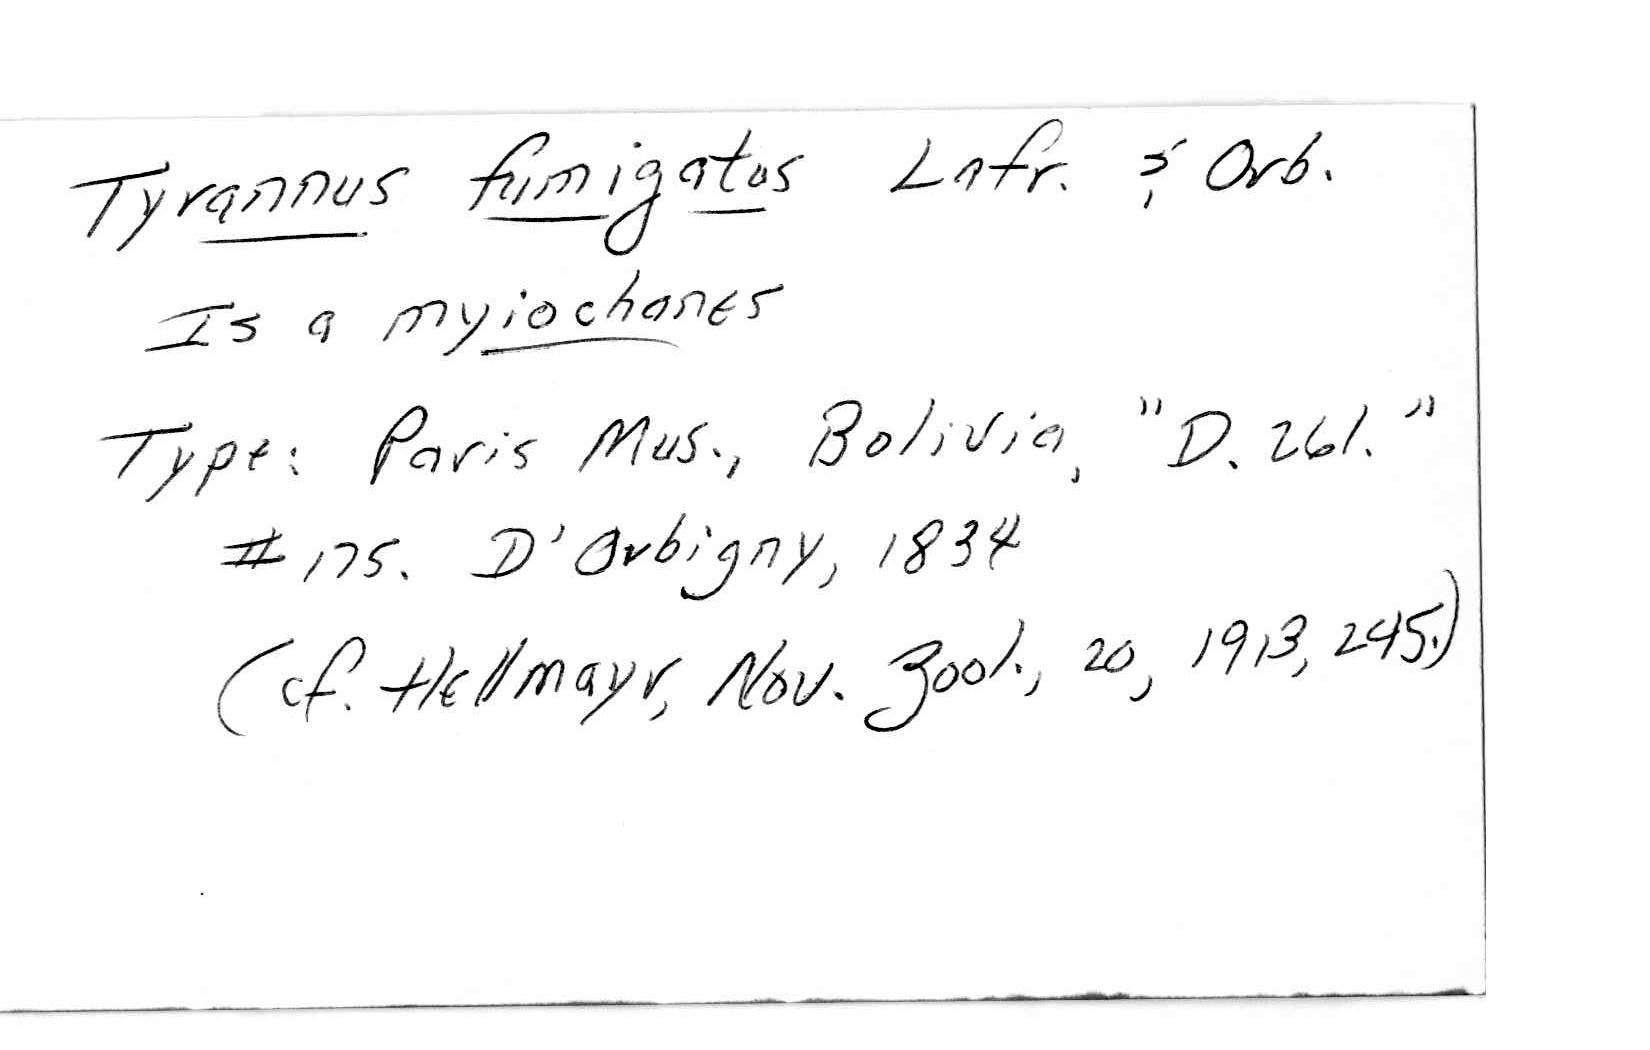 Tyrannus fumigatus Lafr. & Orb.
Is a myiochanes
Type: Paris Mus., Bolivia, "D. 261."
# 175. D'Orbigny, 1834
(cf. Hellmayr, Nov. Zool., 20, 1913, 245.)